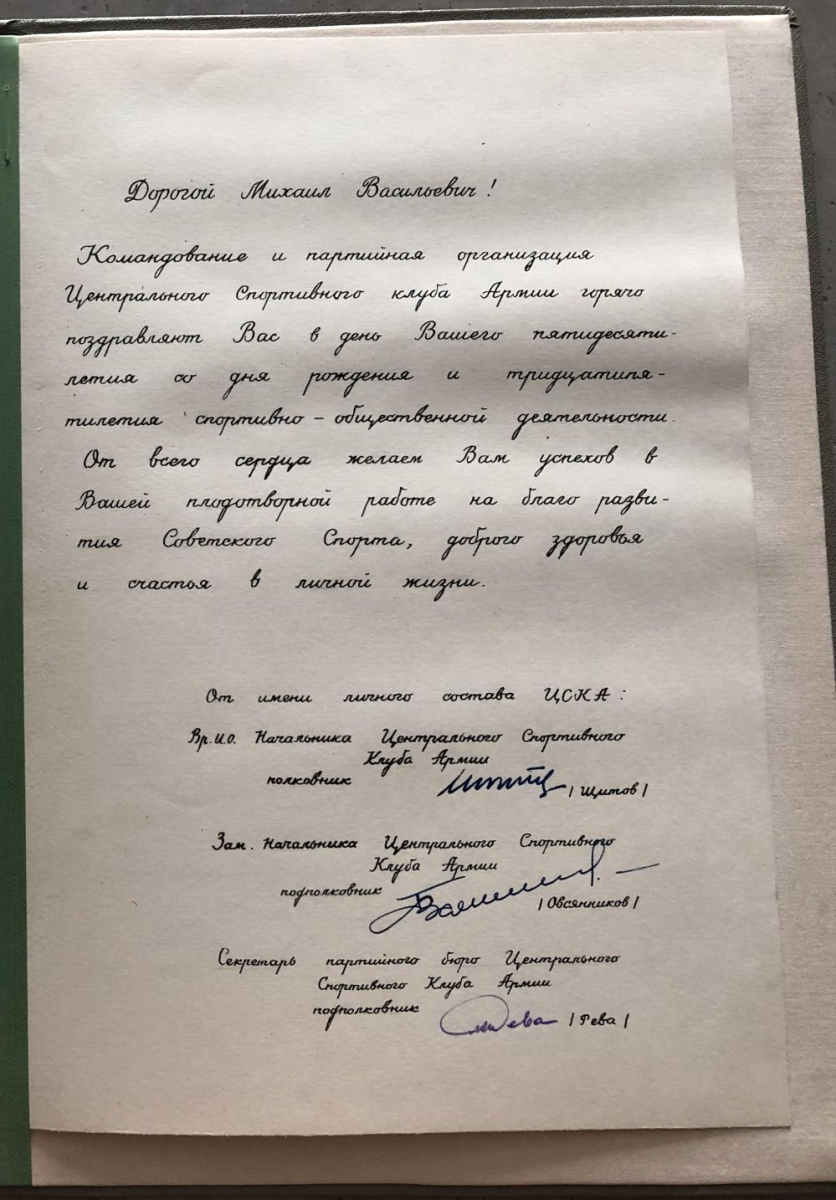 Дорогой Михаил Васильевич!
Командование и партийная организация
Центрального Спортивного клуба Армии горячо
поздравляют Вас в день Вашего пятидесяти-
летия со дня рождения и тридцатипя-
тилетия спортивно - общественной деятельности.
От всего сердца желаем Вам успехов в
Вашей плодотворной работе на благо разви-
тия Советского Спорта, доброго здоровья
и счастья в личной жизни.
От имени личного состава ЦСКА:
Вр.и.о. Начальника Центрального Спортивного
Клуба Армии
полковник /Щитов/
Зам. Начальника Центрального Спортивного
Клуба Армии
подполковник /Овсянников/
Секретарь партийного бюро Центрального
Спортивного Клуба Армии
подполковник /Рева/